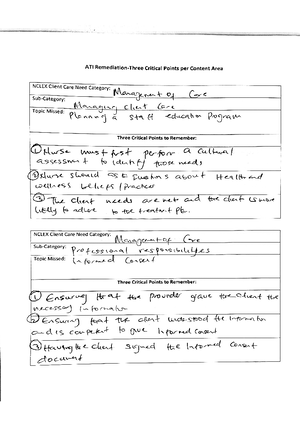 ATI Remediation-Three Critical Points per Content Area
NCLEX Client Care Need Category: Management of Care
Sub-Category: Managing Client Care
Topic Missed: Planning a staff education Program
Three Critical Points to Remember:
① Nurse must first perform a cultural
assessment to identify those needs
② Nurse should ask questions about Health and
wellness beliefs/practices
③ The client needs are met and the client is more
likely to adhere to the treatment
NCLEX Client Care Need Category: Management of Care
Sub-Category: Professional responsibilities
Topic Missed: Informed Consent
Three Critical Points to Remember:
① Ensuring that the provider gave the client the
necessary information
② Ensuring that the client understood the information
and is competent to give Informed Consent
③ Having the client signed the Informed Consent
document